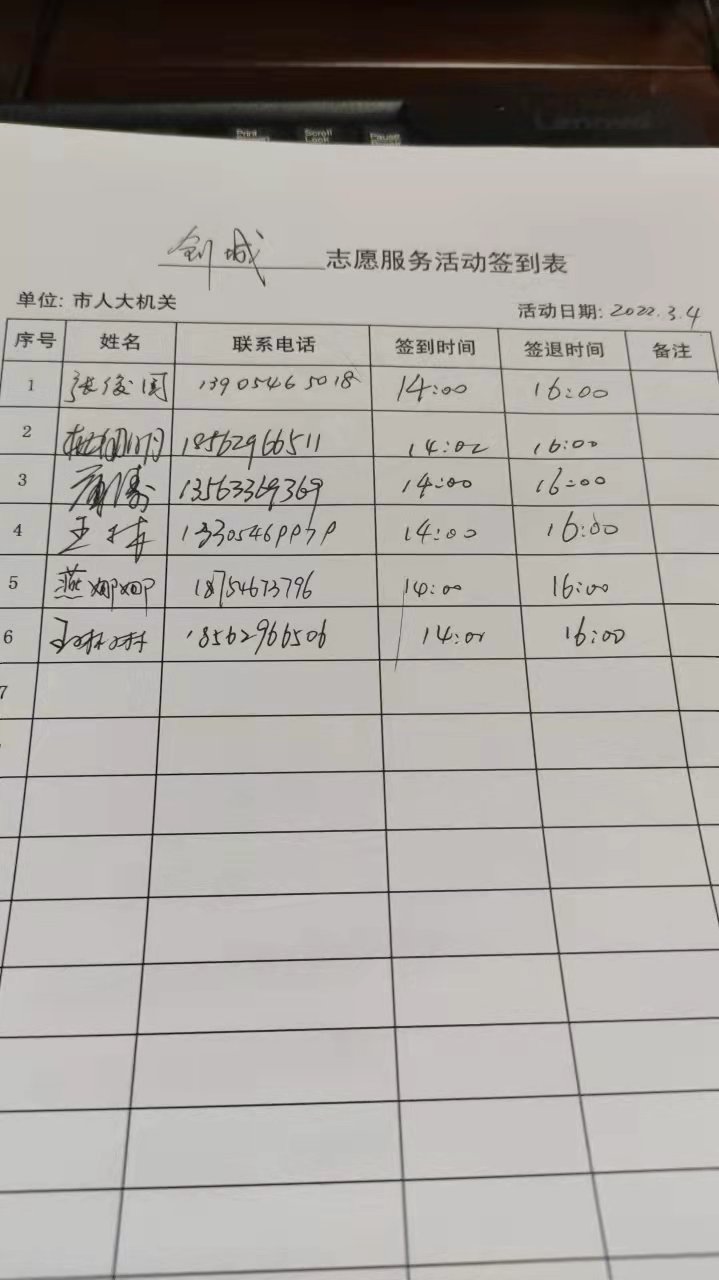 Print
Scroll Lock
Pause
Lenovo
创城 志愿服务活动签到表
单位: 市人大机关 活动日期: 2022.3.4
序号 姓名 联系电话 签到时间 签退时间 备注
1 张俊国 13905465018 14:00 16:00
2 18562966511 14:02 16:00
3 13563369369 14:00 16:00
4 王 14:00 16:00
5 燕娜娜 18754673796 14:00 16:00
6 王林林 18562966506 14:01 16:00
7